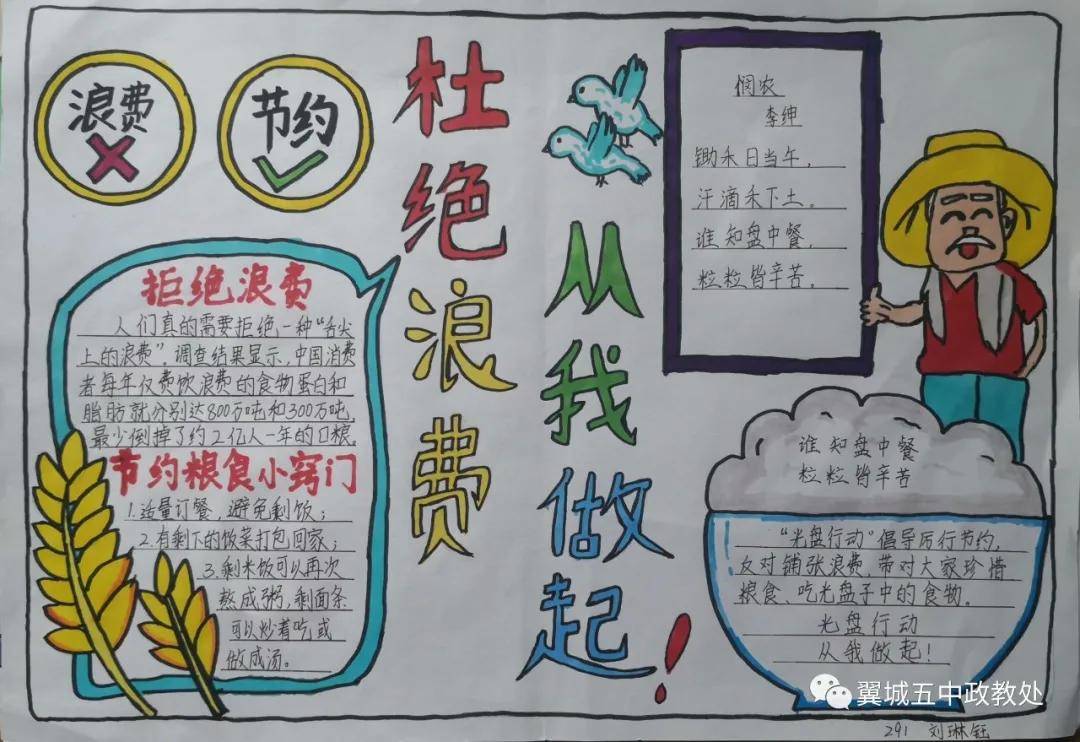 浪费
节约
杜绝浪费
从我做起！
拒绝浪费
人们真的需要拒绝一种“舌尖
上的浪费”。调查结果显示，中国消费
者每年仅费饮浪费的食物蛋白和
脂肪就分别达800万吨和300万吨，
最少倒掉了约2亿人一年的口粮。
节约粮食小窍门
1.适量订餐，避免剩饭；
2.有剩下的饭菜打包回家；
3.剩米饭可以再次
熬成粥，剩面条
可以炒着吃或
做成汤。
悯农
李绅
锄禾日当午，
汗滴禾下土。
谁知盘中餐，
粒粒皆辛苦。
谁知盘中餐
粒粒皆辛苦
“光盘行动”倡导厉行节约，
反对铺张浪费，带对大家珍惜
粮食、吃光盘子中的食物。
光盘行动
从我做起！
翼城五中政教处
291 刘琳钰